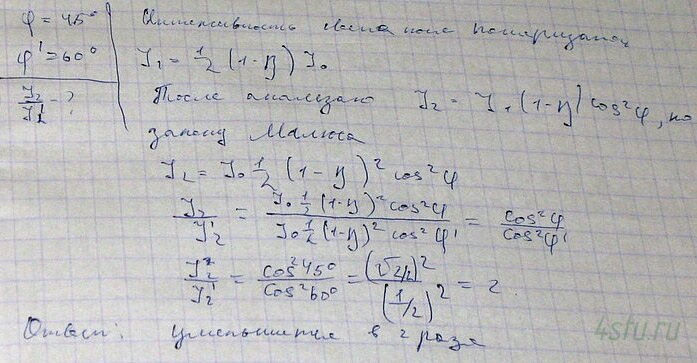 φ = 45°
φ' = 60°
J₂/J₂' - ?
Интенсивность света после поляризатора
J₁ = ½ (1-η) J₀
После анализато J₂ = J₁ (1-η) cos²φ, по
закону Малюса
J₂ = J₀ ½ (1-η)² cos²φ
J₂/J₂' = J₀ ½ (1-η)² cos²φ / J₀ ½ (1-η)² cos²φ' = cos²φ / cos²φ'
J₂/J₂' = cos²45° / cos²60° = (√2/2)² / (1/2)² = 2.
Ответ: уменьшится в 2 раза
4stu.ru